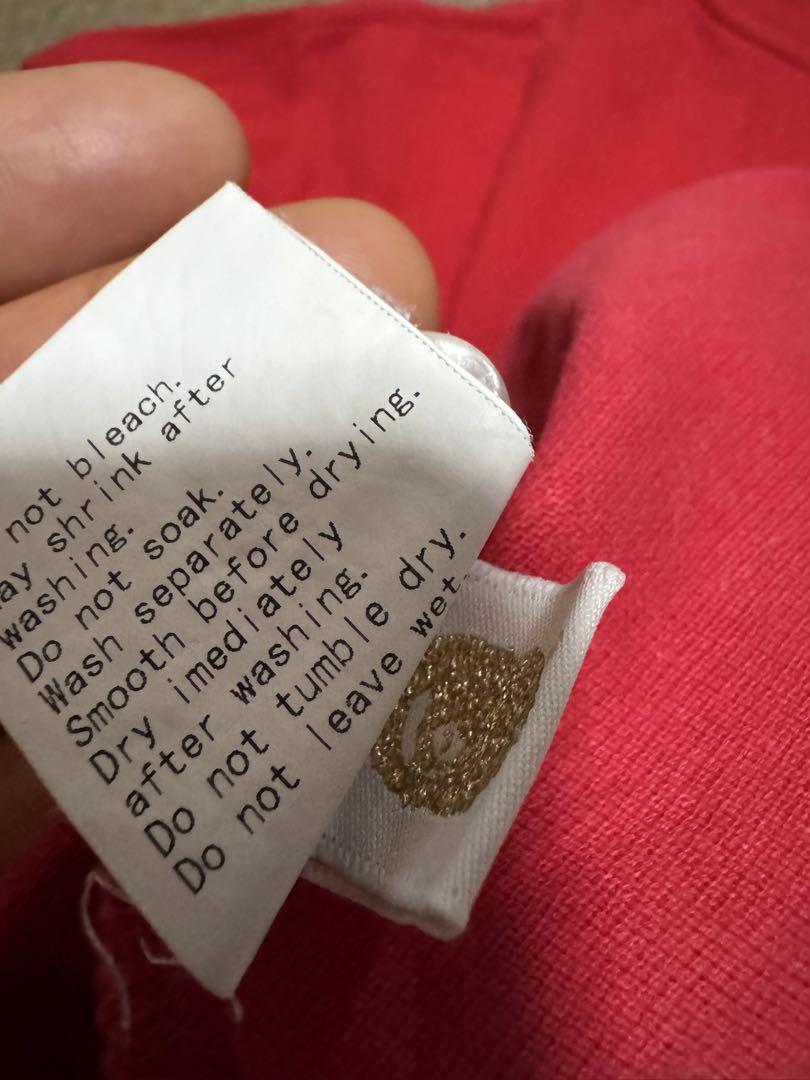 not bleach.
ay shrink after
washing.
Do not soak.
Wash separately.
Smooth before drying.
Dry imediately
after washing.
Do not tumble dry.
Do not leave wet.